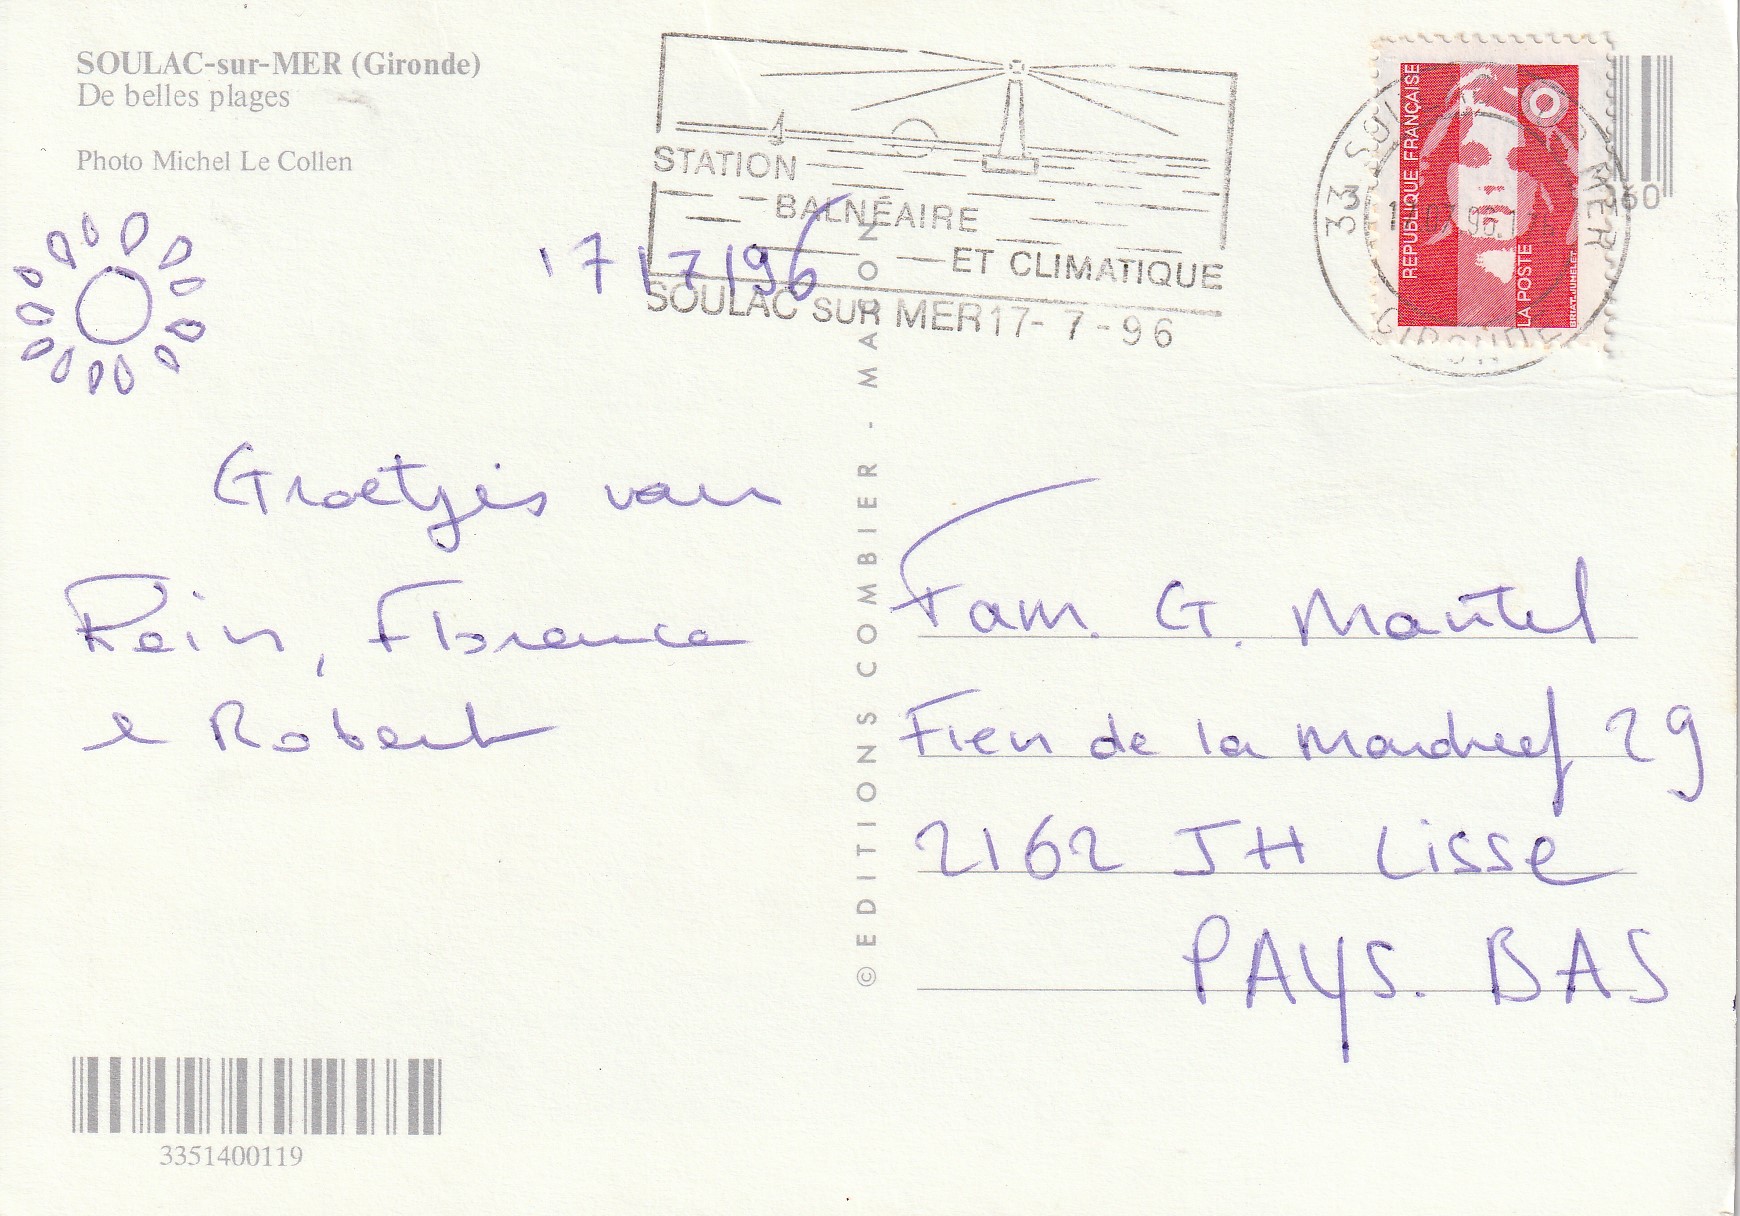 SOULAC-sur-MER (Gironde)
De belles plages
Photo Michel Le Collen
STATION
BALNÉAIRE
ET CLIMATIQUE
SOULAC SUR MER 17-7-96
RÉPUBLIQUE FRANÇAISE
LA POSTE
BRIAT-JUMELET
33
MER
GIRONDE
17/7/96
Groetjes van
Rein, Florence
e Robert
© EDITIONS COMBIER - MACON
Fam. G. Mantel
Fien de la Mardreef 29
2162 JH Lisse
PAYS. BAS
3351400119